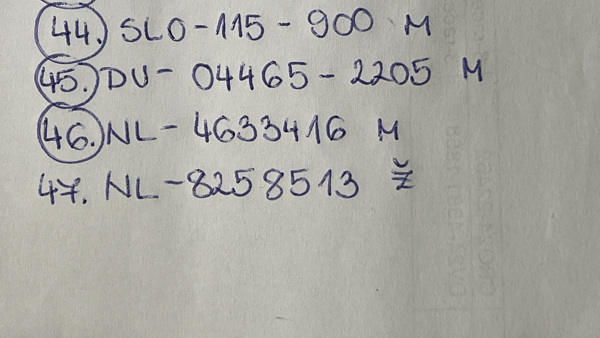 44. SLO-115-900 M
45. DV-04465-2205 M
46. NL-4633416 M
47. NL-8258513 Ž